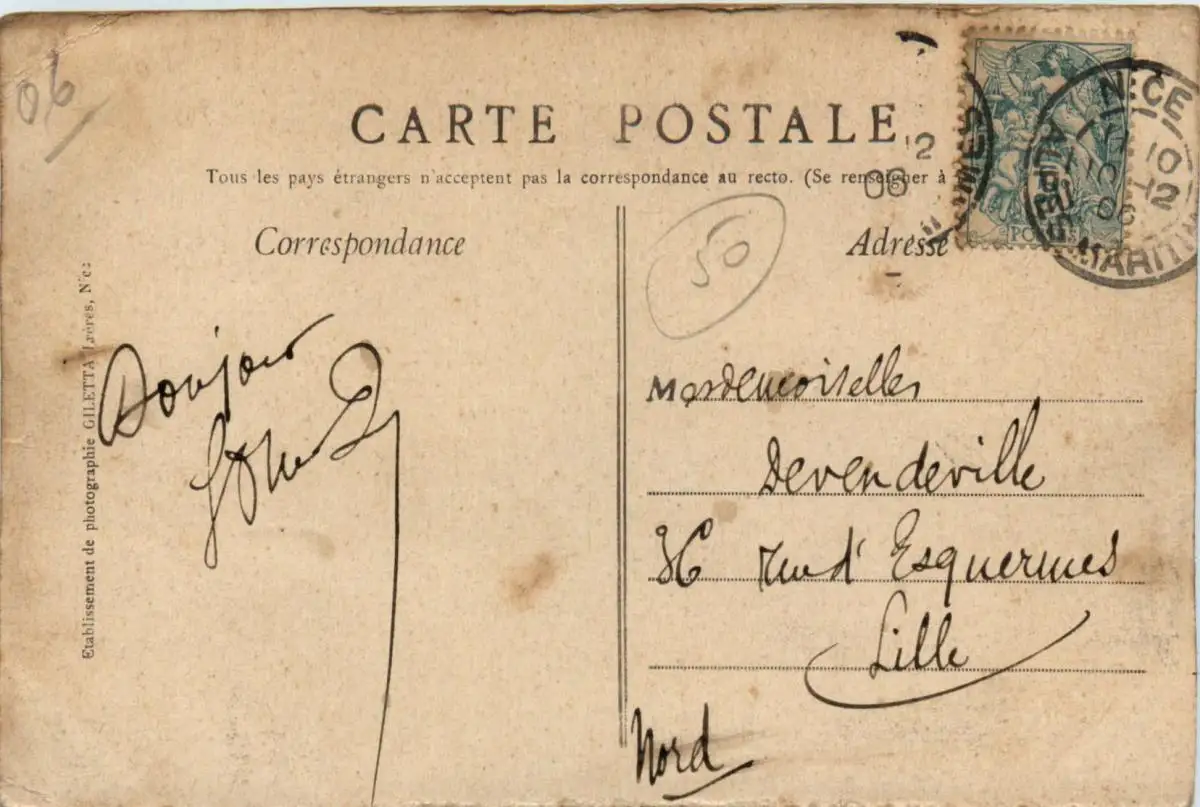 06
CARTE POSTALE
Tous les pays étrangers n'acceptent pas la correspondance au recto. (Se renseigner à
Correspondance
Adresse
50
Etablissement de photographie GILETTA frères, Nice
Bonjour
Mesdemoiselles
Devendeville
36 rue d'Esquermes
Lille
Nord
NICE
10
12
06
ALPES MARITIMES
12
06